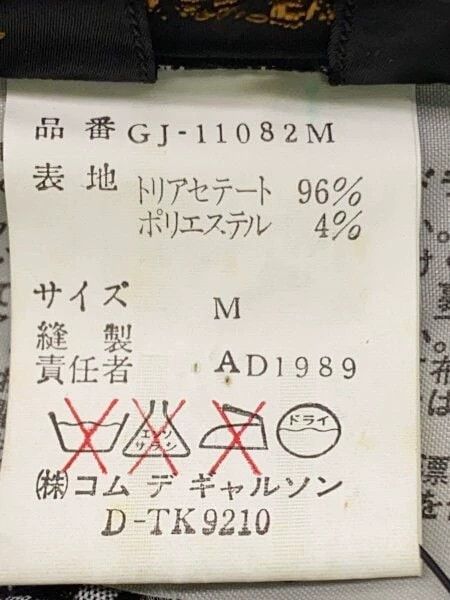 品番 GJ-11082M
表地 トリアセテート 96%
ポリエステル 4%
サイズ M
縫製
責任者 AD1989
エンソ
サラシ
ドライ
(株)コム デ ギャルソン
D-TK9210